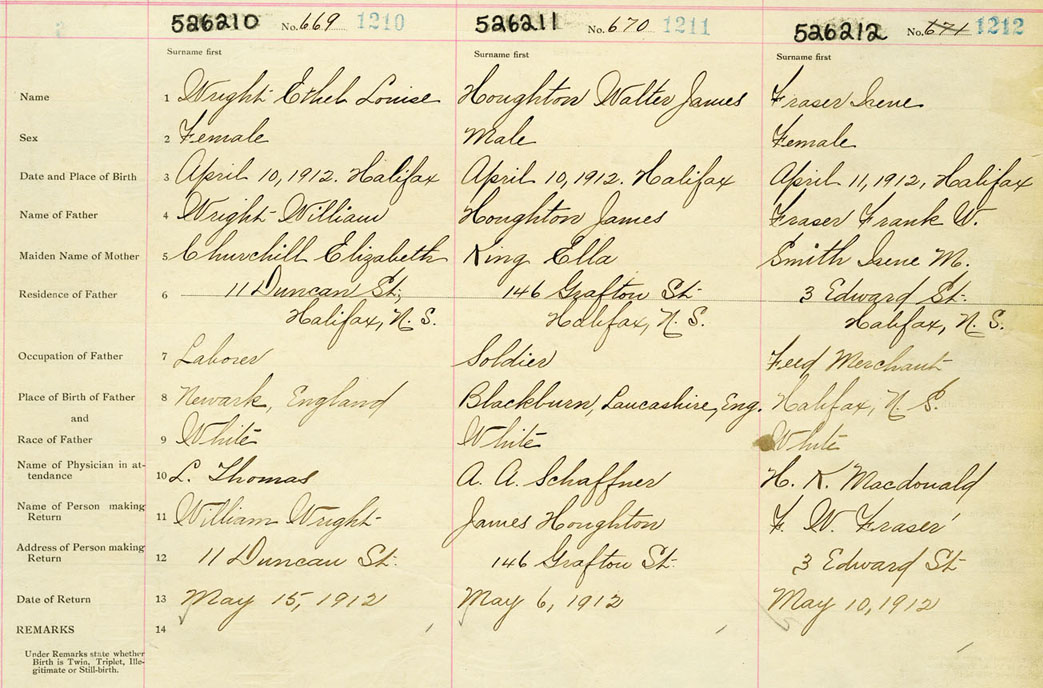 526210 No. 669 1210 526211 No. 670 1211 526212 No. 671 1212
Surname first Surname first Surname first
Name 1 Wright Ethel Louise Houghton Walter James Fraser Irene
Sex 2 Female Male Female
Date and Place of Birth 3 April 10, 1912. Halifax April 10, 1912. Halifax April 11, 1912, Halifax
Name of Father 4 Wright William Houghton James Fraser Frank W.
Maiden Name of Mother 5 Churchill Elizabeth King Ella Smith Irene M.
Residence of Father 6 11 Duncan St., 146 Grafton St. 3 Edward St.
Halifax, N. S. Halifax, N. S. Halifax, N. S.
Occupation of Father 7 Laborer Soldier Feed Merchant
Place of Birth of Father 8 Newark, England Blackburn, Lancashire, Eng. Halifax, N. S.
and
Race of Father 9 White White White
Name of Physician in at-
tendance 10 L. Thomas A. A. Schaffner H. K. Macdonald
Name of Person making
Return 11 William Wright James Houghton F. W. Fraser
Address of Person making
Return 12 11 Duncan St. 146 Grafton St. 3 Edward St.
Date of Return 13 May 15, 1912 May 6, 1912 May 10, 1912
REMARKS 14
Under Remarks state whether
Birth is Twin, Triplet, Ille-
gitimate or Still-birth.